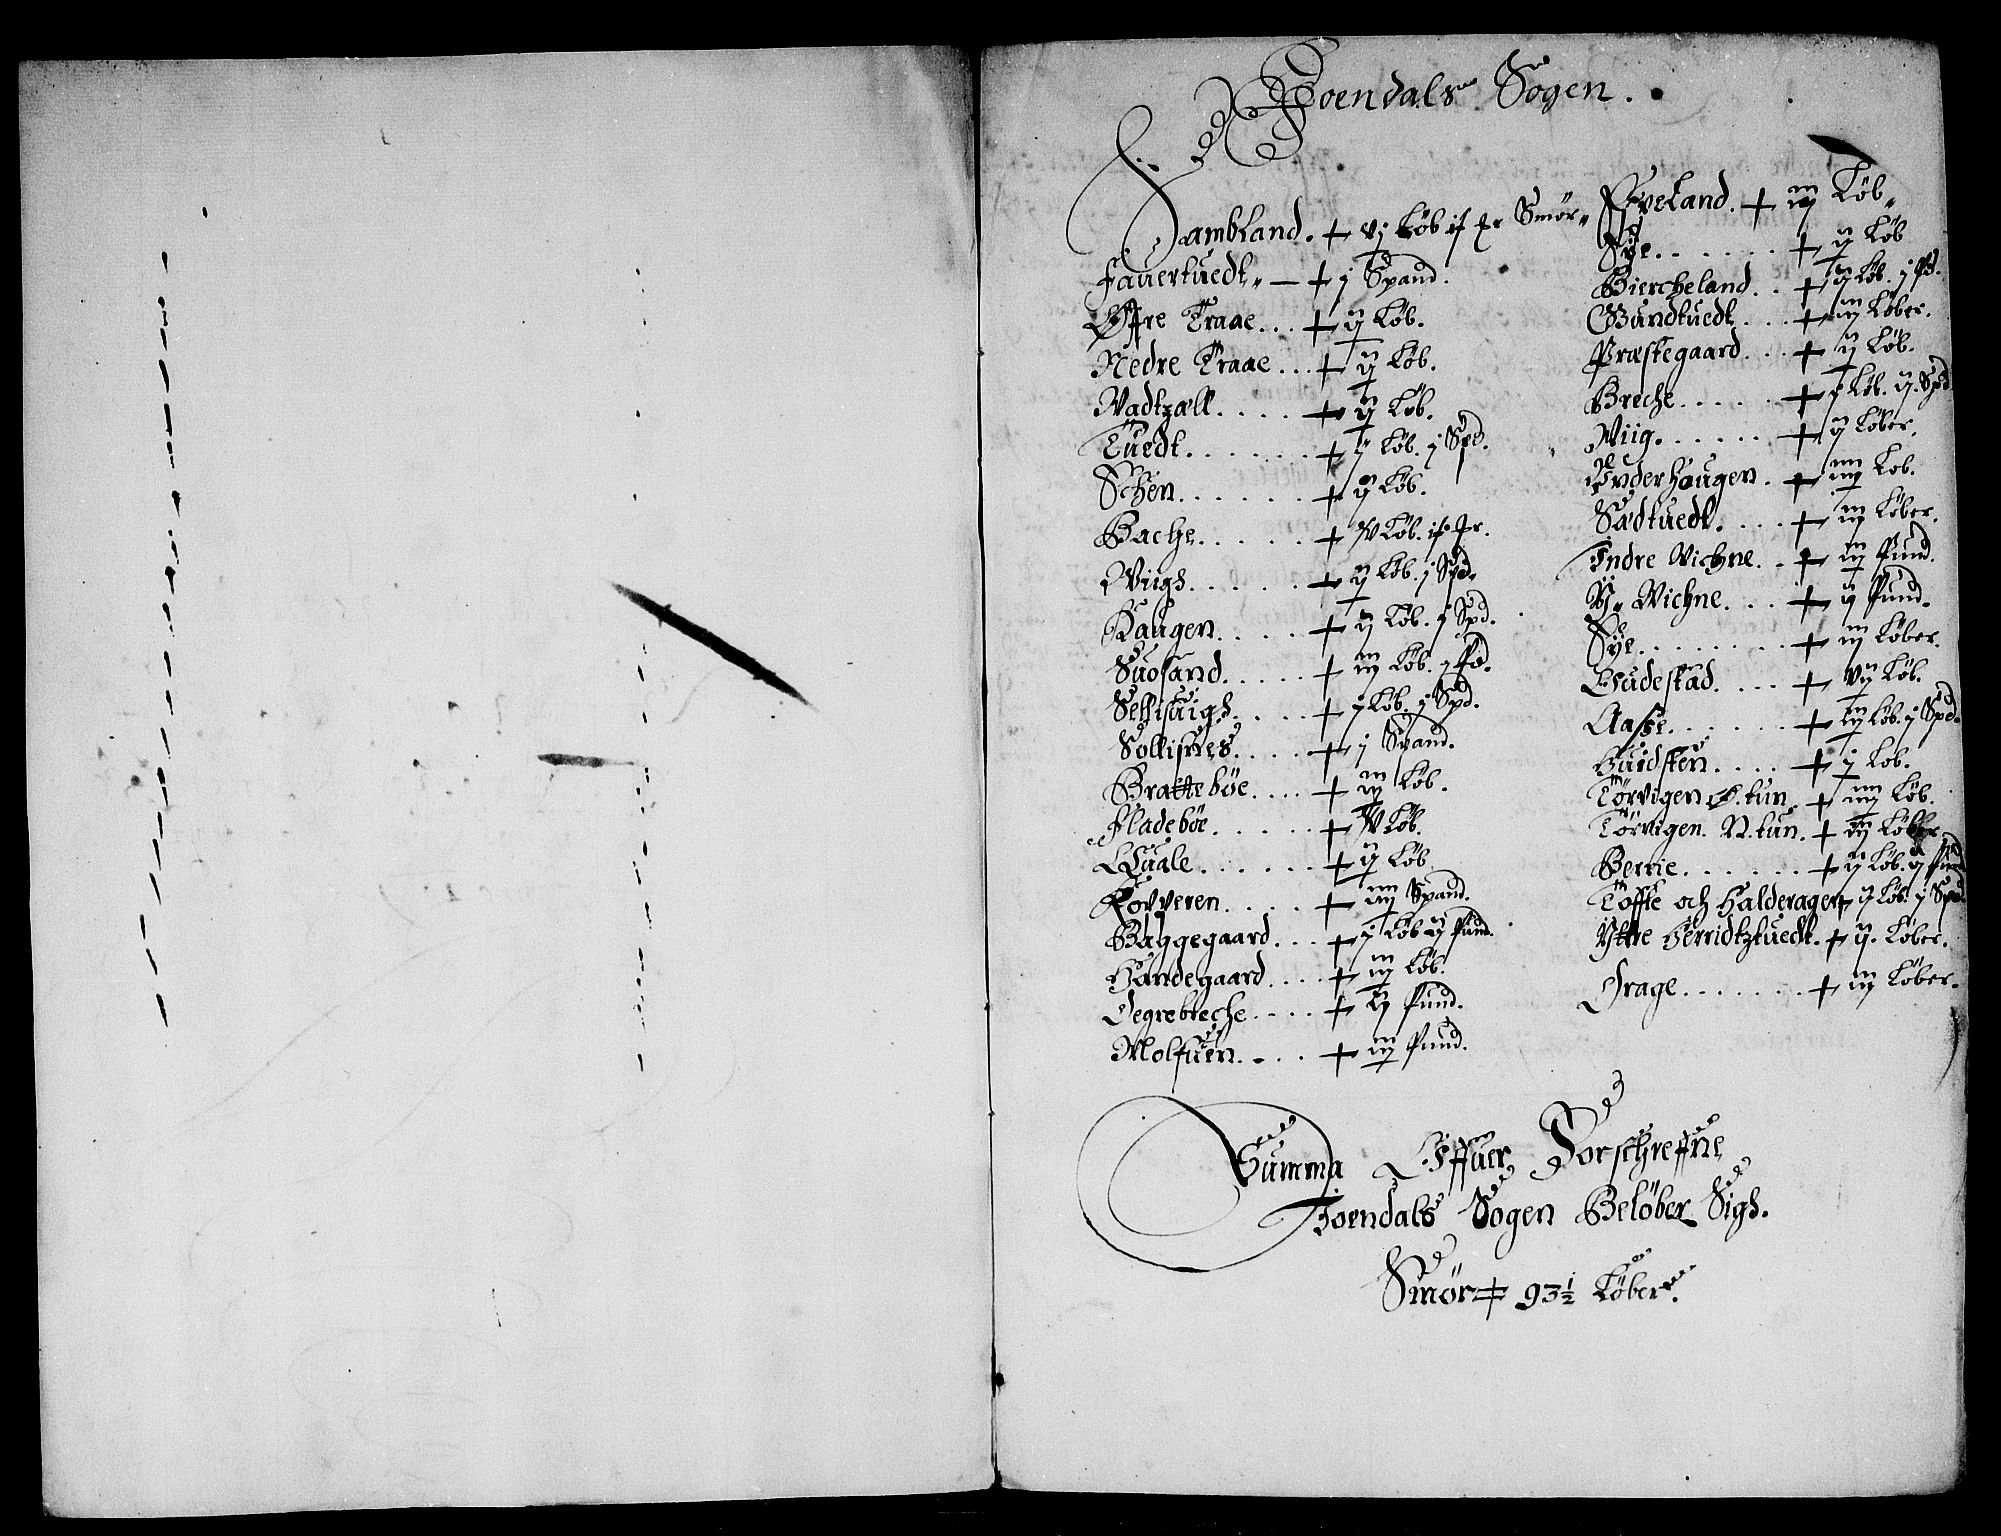 Joendals Sogen.
Sambland. + vj Løb if pr Smør
Fauertuedt — + j Spand.
Øffre Traae... + ij Løb.
Nedre Traae... + ij Løb.
Vadtzæll.... + ij Løb.
Tuedt...... + ij Løb. j Spd.
Schen...... + ij Løb.
Bache..... + iV Løb. if pr.
Viigh...... + ij Løb. j Spd.
Haugen.... + ij Løb. j Spd.
Suosand..... + iij Løb. j Pd.
Sellisuigh.... + j Løb. j Spd.
Sollisnes.... + j Spand.
Brattebøe.... + iij Løb.
Fladebøe..... + iV Løb.
Quale...... + ij Løb
Kovveren.... + iiij Spand.
Baggegaard... + j Løb ij Pund.
Handegaard.... + iij Løb.
Degrebreche.... + ij Pund.
Molfuen.... + iij Pund.
Eveland. + iij Løb
Sye...... + ij Løb
Biercheland.. + ij Løb. j Pd.
Gundtuedt.... + iij Løber.
Præstegaard... + ij Løb.
Breche..... + j Løb. ij. Spd
Viig...... + ij Løber.
Inderhaugen. + iiij Løb.
Sædtuedt.... + iij Løber.
Indre Vichne.. + iij Pund.
Y. Vichne.... + ij Pund.
Sye........ + iij Løber.
Gudestad.... + vij Løb.
Aasse...... + iij Løb. j Spd.
Huidsten.... + j Løb.
Tørvigen Ø. tun. + iiij Løb.
Tørvigen. N. tun. + iij Løber
Berrie...... + ij Løb. ij Pund
Toffte och Halderager + ij Løb. j Spd
Yttre Herridtztuedt. + ij. Løber.
Drage....... + iij Løber.
Summa Offuer Forschreffne
Joendals Sogen Beløber Sigh.
Smør 93½ Løber.